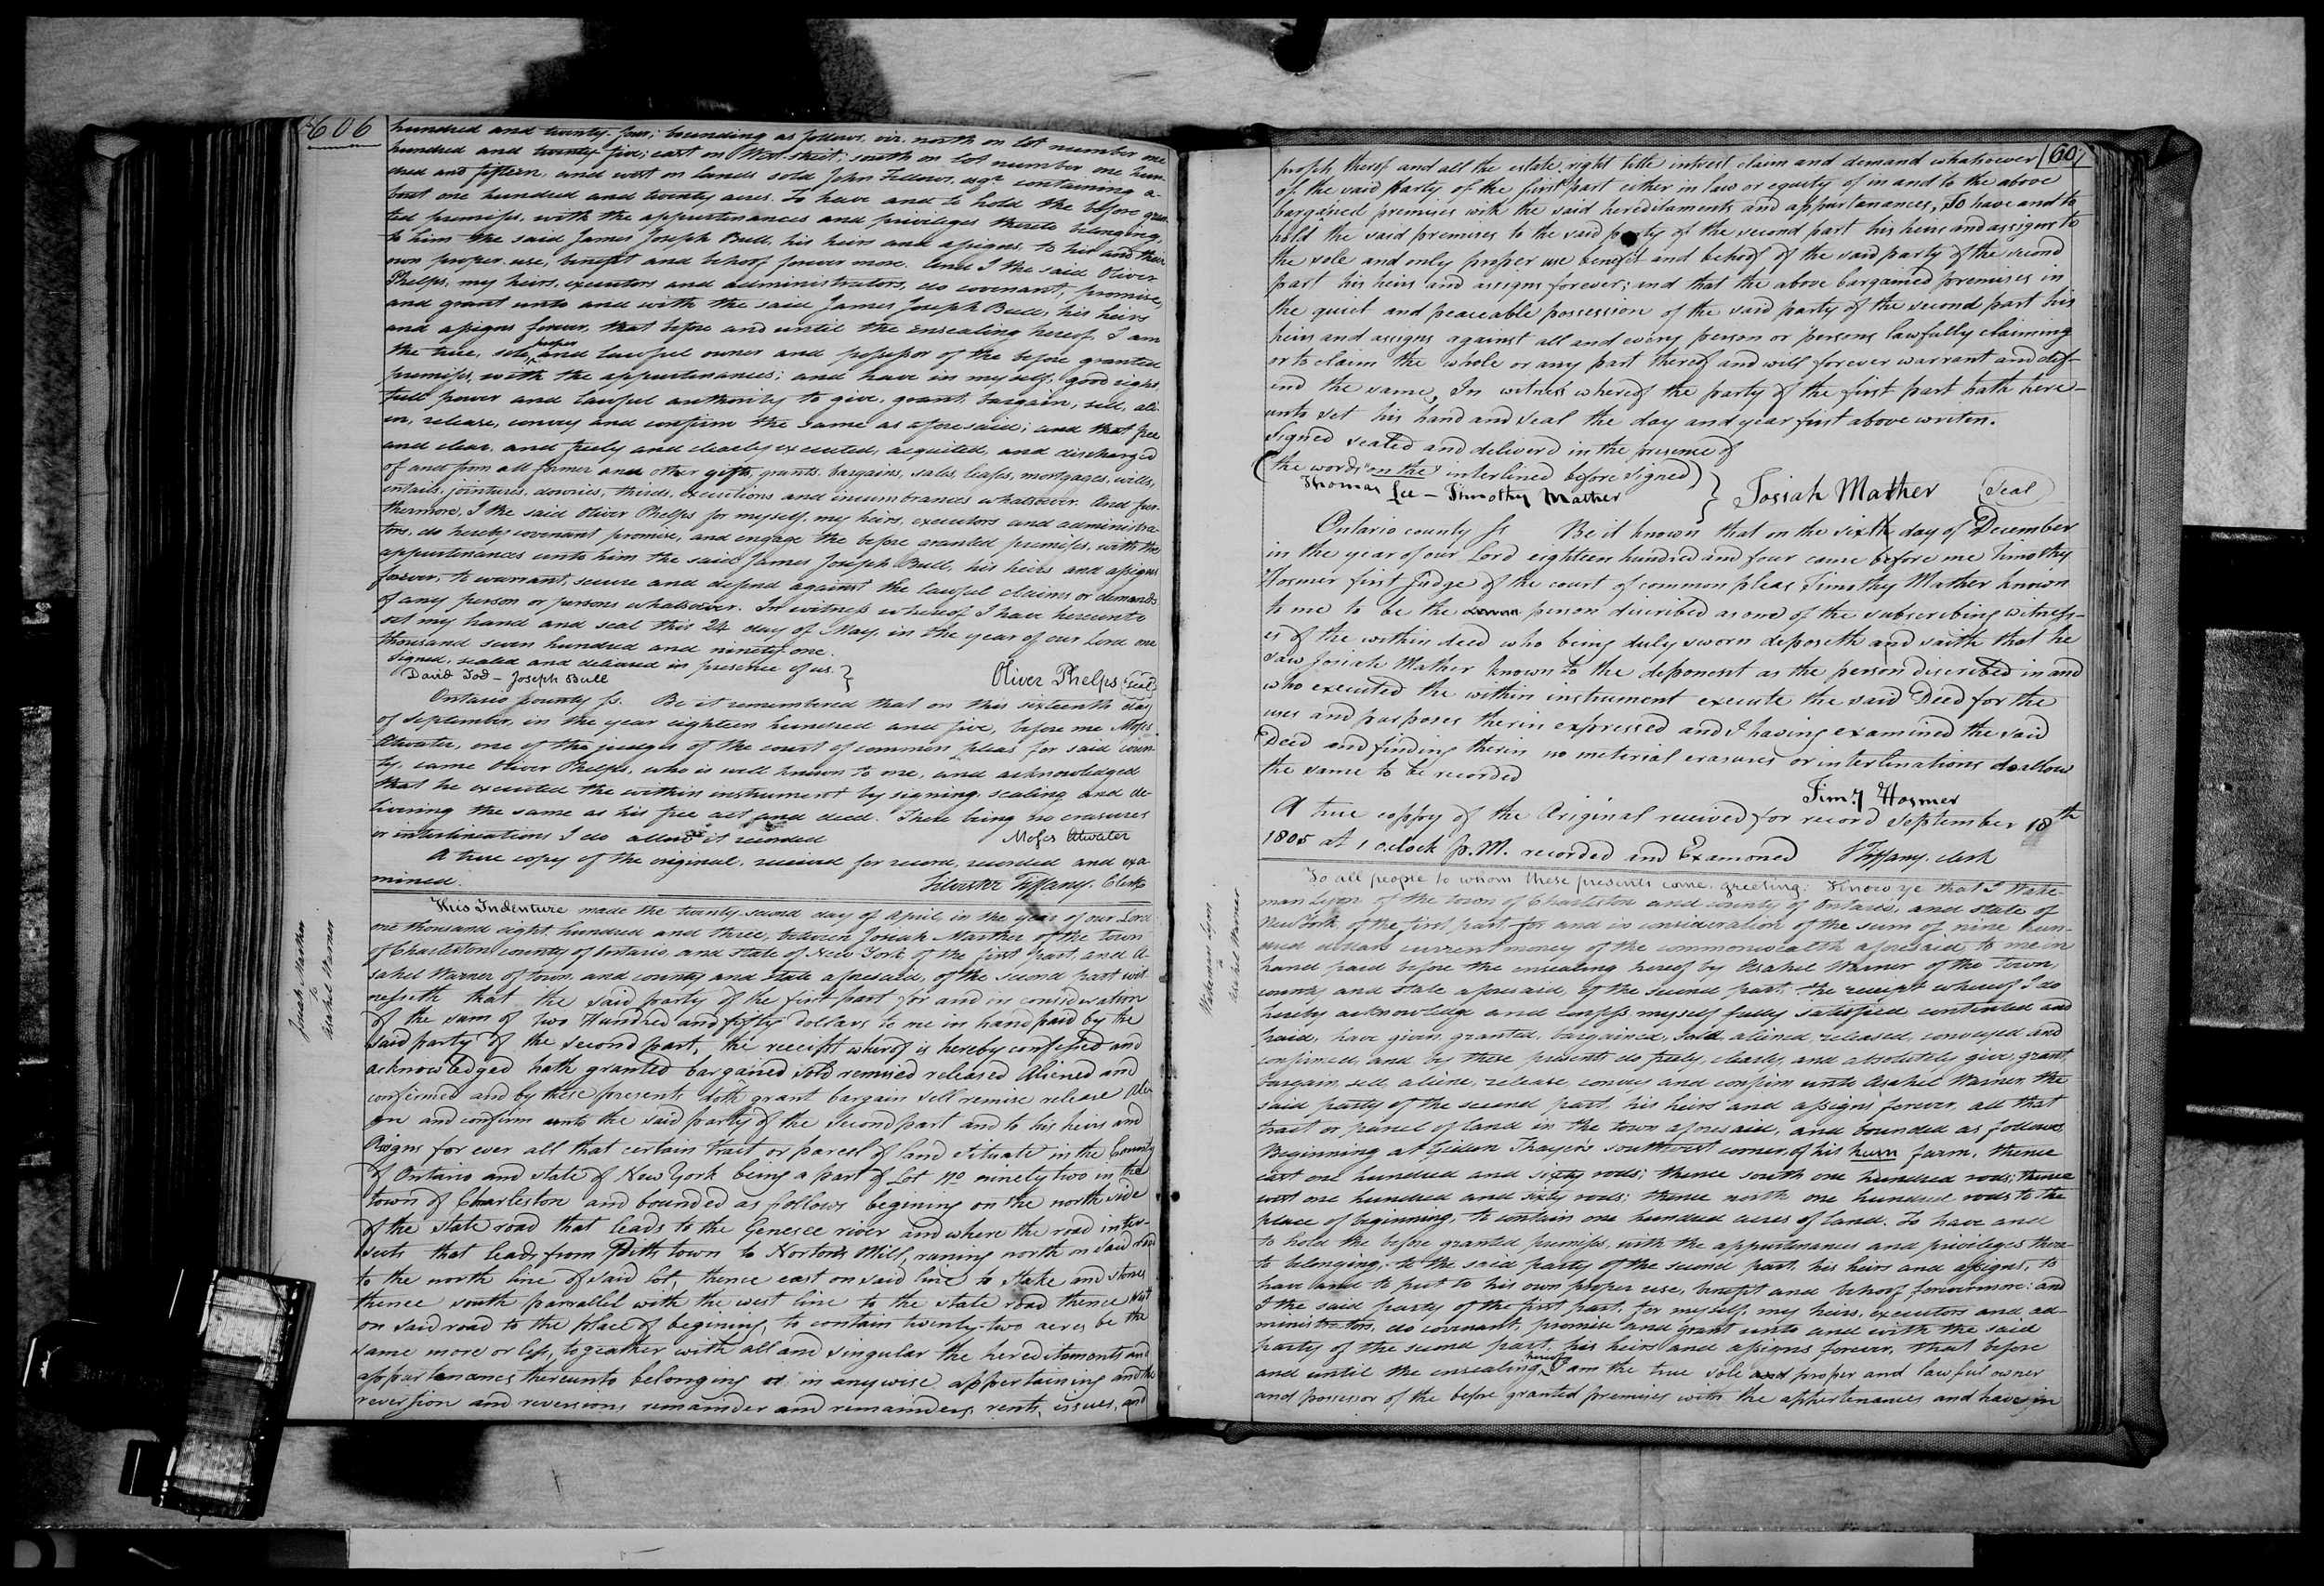 606
hundred and twenty four; bounding as follows, viz. north on lot number one
hundred and twenty five; east on West street; south on lot number one hun-
dred and fifteen, and west on lands sold John Fellows, esqr. containing a-
bout one hundred and twenty acres. To have and to hold the before gran-
ted premises, with the appurtenances and privileges thereto belonging,
to him the said James Joseph Bull, his heirs and assigns, to his and their
own proper use, benefit and behoof forever more. And I the said Oliver
Phelps, my heirs, executors and administrators, do covenant, promise,
and grant unto and with the said James Joseph Bull, his heirs
and assigns forever, that before and until the ensealing hereof, I am
the true, sole, proper and lawful owner and possessor of the before granted
premises, with the appurtenances; and have in myself, good right,
full power and lawful authority to give, grant, bargain, sell, ali-
en, release, convey and confirm the same as aforesaid; and that free
and clear, and freely and clearly executed, acquited, and discharged
of and from all former and other gifts, grants, bargains, sales, leases, mortgages, wills,
entails, jointures, dowries, thirds, executions and incumbrances whatsoever. And fur-
thermore, I the said Oliver Phelps for myself, my heirs, executors and administra-
tors, do hereby covenant promise, and engage the before granted premises, with the
appurtenances unto him the said James Joseph Bull, his heirs and assigns
forever, to warrant, secure and defend against the lawful claims or demands
of any person or persons whatsoever. In witness whereof I have hereunto
set my hand and seal this 24 day of May, in the year of our Lord one
thousand seven hundred and ninety one.
Signed, sealed and delivered in presence of us. }
David Tod - Joseph Bull Oliver Phelps (Seal)
Ontario county ss. Be it remembered that on this sixteenth day
of September, in the year eighteen hundred and five, before me Moses
Atwater, one of the judges of the court of common pleas for said coun-
ty, came Oliver Phelps, who is well known to me, and acknowledged
that he executed the within instrument by signing, sealing and de-
livering the same as his free act and deed. There being no erasures
or interlineations I do allow it recorded Moses Atwater
A true copy of the original, received for record, recorded and exa
mined. Silvester Tiffany. Clerk
Josiah Marther
to
Asahel Warner
This Indenture made the twenty second day of April in the year of our Lord
one thousand eight hundred and three, between Josiah Marther of the town
of Charleston county of Ontario and state of New York of the first part, and A-
sahel Warner of town and county and state aforesaid, of the second part wit
nesseth that the said party of the first part for and in consideration
of the sum of two Hundred and fifty dollars to me in hand paid by the
said party of the second part, the receipt wherof is hereby confesed and
acknowledged hath granted bargained sold remised released Aliened and
confirmed and by these presents doth grant bargain sell remise release Ali
en and confirm unto the said party of the second part and to his heirs and
Assigns for ever all that certain tract or parcel of land situate in the County
of Ontario and state of New York being a part of Lot No ninety two in the
town of Charleston and bounded as follows begining on the north side
of the state road that leads to the Genesee river and where the road inter-
sects that leads from Pitts town to Nortons Mill, runing north on said road
to the north line of said lot, thence east on said line to stake and stones
thence south parrallel with the west line to the state road thence west
on said road to the place of begining, to contain twenty-two acres be the
same more or less, togeather with all and singular the hereditaments and
appurtenances thereunto belonging or in anywise appertaining and the
reversion and reversions remainder and remainders rents, issues, and
607
profits thereof and all the estate right title intrest claim and demand whatsoever
of the said party of the first part either in law or equity of in and to the above
bargained premises with the said hereditaments and appurtanances, To have and to
hold the said premises to the said party of the second part his heirs and assigns to
the sole and only proper use benefit and behoof of the said party of the second
part his heirs and assigns forever; and that the above bargained premises in
the quiet and peaceable possession of the said party of the second part his
heirs and assigns against all and every person or persons lawfully claiming
or to claim the whole or any part thereof and will forever warrant and def-
end the same, In witness whereof the party of the first part hath here-
unto set his hand and seal the day and year first above writen.
Signed sealed and deliverd in the presence of
(the words "on the" interlined before signed) }
Thomas Lee - Timothy Mather Josiah Mather (Seal)
Ontario county ss Be it known that on the sixth day of December
in the year of our Lord eighteen hundred and four came before me Timothy
Hosmer first Judge of the court of common pleas Timothy Mather known
to me to be the person discribed as one of the subscribing witness-
es of the within deed who being duly sworn deposeth and saith that he
saw Josiah Mather known to the deponent as the person discribed in and
who executed the within instrument execute the said Deed for the
uses and purposes therin expressed and I having examined the said
Deed and finding therin no meterial erasures or interlinations do allow
the same to be recorded
Timy Hosmer
A true coppy of the Original received for record September 18th
1805 at 1 oclock P.M. recorded and Examoned S Tiffany. clerk
Wateman Lyon
to
Asahel Warner
To all people to whom these presents come, greeting: Know ye that I Wate-
man Lyon of the town of Charleston and county of Ontario, and state of
New York of the first part for and in consideration of the sum of nine hun-
dred dollars current money of the commonwealth aforesaid to me in
hand paid before the ensealing hereof by Asahel Warner of the town,
county and state aforesaid, of the second part, the receipt whereof I do
hereby acknowledge and confess myself fully satisfied contented and
paid, have given, granted, bargained, sold, aliened, released, conveyed and
confirmed, and by these presents do freely, clearly, and absolutely give, grant,
bargain, sell, aliene, release, convey and confirm unto Asahel Warner the
said party of the second part, his heirs and assigns forever, all that
tract or parcel of land in the town aforesaid, and bounded as follows,
Beginning at Gideon Thayer's southwest corner of his farm, thence
east one hundred and sixty rods; thence south one hundred rods; thence
west one hundred and sixty rods; thence north one hundred rods to the
place of beginning, to contain one hundred acres of land. To have and
to hold the before granted premises, with the appurtenances and privileges there-
to belonging, to the said party of the second part, his heirs and assigns, to
have and to put to his own proper use, benefit and behoof forevermore: and
I the said party of the first part, for myself, my heirs, executors and ad-
ministrators, do covenant, promise and grant unto and with the said
party of the second part, his heirs and assigns forever, that before
and until the ensealing hereof I am the true sole and proper and lawful owner
and possessor of the before granted premises with the appertenances and have in